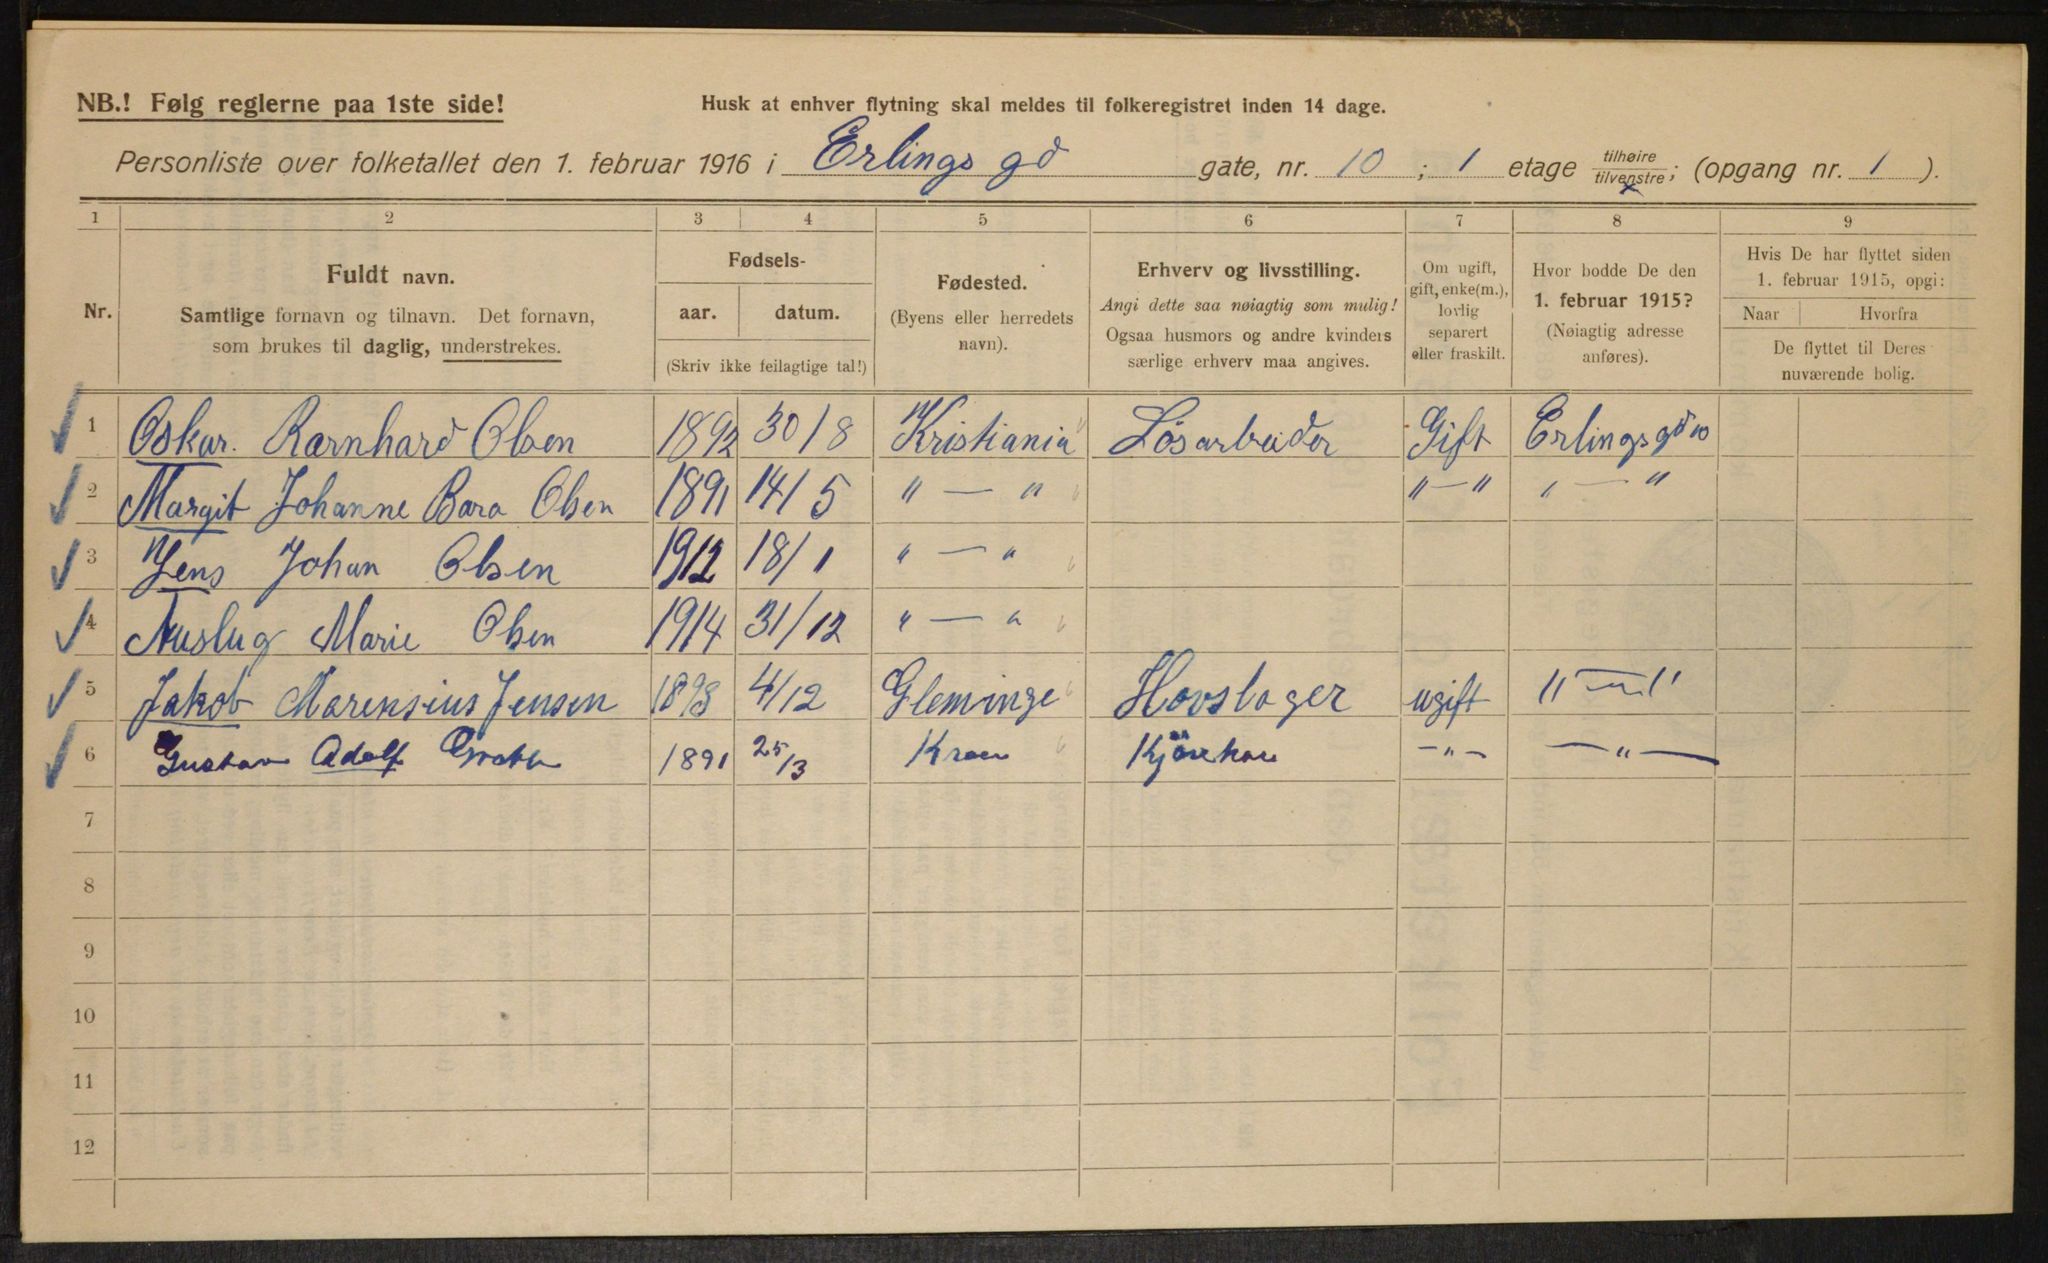 NB.! Følg reglerne paa 1ste side!
Husk at enhver flytning skal meldes til folkeregistret inden 14 dage.
Personliste over folketallet den 1. februar 1916 i Erlings gd gate, nr. 10 ; 1 etage tilhøire/tilvenstre; (opgang nr. 1 ).
1 2 3 4 5 6 7 8 9
Nr.
Fuldt navn.
Samtlige fornavn og tilnavn. Det fornavn,
som brukes til daglig, understrekes.
Fødsels-
aar. datum.
(Skriv ikke feilagtige tal!)
Fødested.
(Byens eller herredets
navn).
Erhverv og livsstilling.
Angi dette saa nøiagtig som mulig!
Ogsaa husmors og andre kvinders
særlige erhverv maa angives.
Om ugift,
gift, enke(m.),
lovlig
separert
eller fraskilt.
Hvor bodde De den
1. februar 1915?
(Nøiagtig adresse
anføres).
Hvis De har flyttet siden
1. februar 1915, opgi:
Naar Hvorfra
De flyttet til Deres
nuværende bolig.
1 Oskar. Bernhard Olsen 1892 30/8 Kristiania Løsarbeider Gift Erlings gd 10
2 Margit Johanne Bara Olsen 1891 14/5 " — " " — " " — "
3 Jens Johan Olsen 1912 18/1 " — "
4 Auslug Marie Olsen 1914 31/12 " — "
5 Jakob Marensius Jensen 1898 4/12 Gleminge Hovslager ugift " — "
6 Gustav Adolf 1891 25/3 — " — — " —
7
8
9
10
11
12